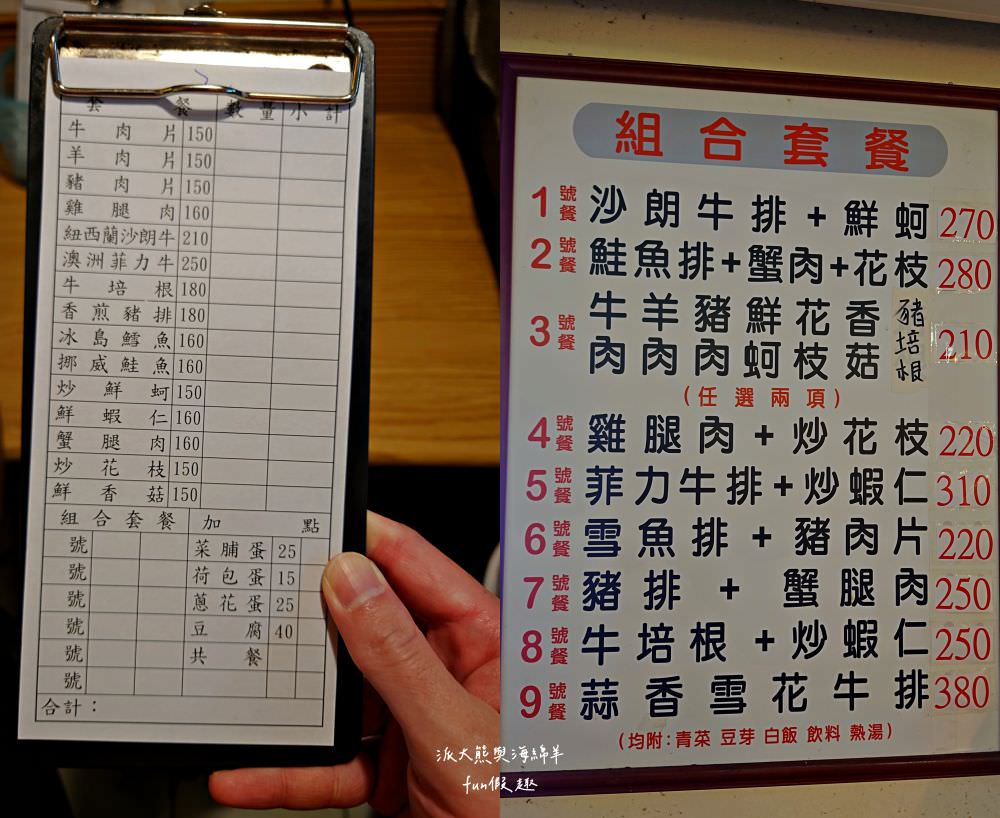 套餐 數量 小計
牛肉片 150
羊肉片 150
豬肉片 150
雞腿肉 160
紐西蘭沙朗牛 210
澳洲菲力牛 250
牛培根 180
香煎豬排 180
冰島鱈魚 160
挪威鮭魚 160
炒鮮蚵 150
鮮蝦仁 160
蟹腿肉 160
炒花枝 150
鮮香菇 150
組合套餐 加點
號 菜脯蛋 25
號 荷包蛋 15
號 蔥花蛋 25
號 豆腐 40
號 共餐
號
合計：
組合套餐
1號餐 沙朗牛排+鮮蚵 270
2號餐 鮭魚排+蟹肉+花枝 280
3號餐 牛肉 羊肉 豬肉 鮮蚵 花枝 香菇 豬培根 210
(任選兩項)
4號餐 雞腿肉+炒花枝 220
5號餐 菲力牛排+炒蝦仁 310
6號餐 雪魚排+豬肉片 220
7號餐 豬排+蟹腿肉 250
8號餐 牛培根+炒蝦仁 250
9號餐 蒜香雪花牛排 380
(均附:青菜 豆芽 白飯 飲料 熱湯)
派大熊與海綿羊
fun假趣